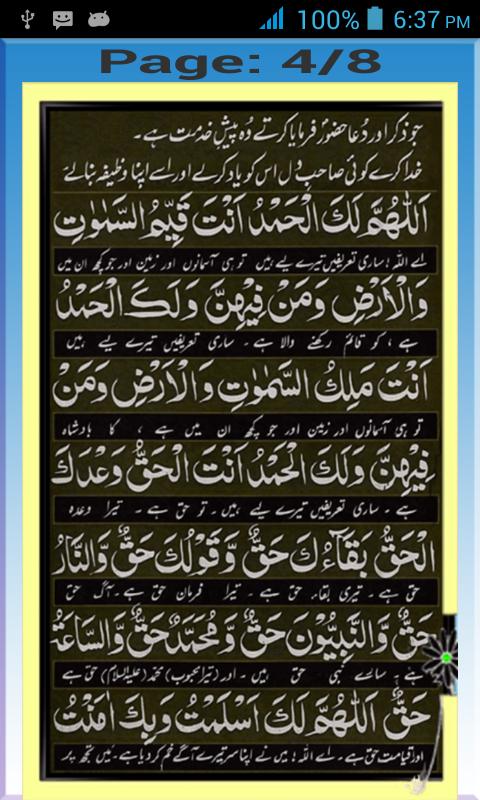 100% 6:37 PM
Page: 4/8
جو ذکر اور دُعا حضورؐ فرمایا کرتے وُہ پیشِ خدمت ہے۔
خدا کرے کوئی صاحبِ دل اس کو یاد کرے اور اسے اپنا وظیفہ بنالے
اَللّٰهُمَّ لَكَ الْحَمْدُ اَنْتَ قَيِّمُ السَّمٰوٰتِ
اے اللہ! ساری تعریفیں تیرے لیے ہیں تو ہی آسمانوں اور زمین اور جو کچھ ان میں
وَالْاَرْضِ وَمَنْ فِيْهِنَّ وَلَكَ الْحَمْدُ
ہے ، کو قائم رکھنے والا ہے ۔ ساری تعریفیں تیرے لیے ہیں
اَنْتَ مَلِكُ السَّمٰوٰتِ وَالْاَرْضِ وَمَنْ
تو ہی آسمانوں اور زمین اور جو کچھ ان میں ہے ، کا بادشاہ
فِيْهِنَّ وَلَكَ الْحَمْدُ اَنْتَ الْحَقُّ وَعْدَكَ
ہے ۔ ساری تعریفیں تیرے لیے ہیں ۔ تو حق ہے ۔ تیرا وعدہ
الْحَقُّ بَقَآءُكَ حَقٌّ وَّقَوْلُكَ حَقٌّ وَّالنَّارُ
حق ہے ۔ تیری بقاء حق ہے ۔ تیرا فرمان حق ہے ۔ آگ حق
حَقٌّ وَّالنَّبِيُّوْنَ حَقٌّ وَّمُحَمَّدٌ حَقٌّ وَّالسَّاعَةُ
ہے ۔ سارے نبی حق ہیں ۔ اور (تیرا محبوب) محمد (علیہ السلام) حق ہے
حَقٌّ اَللّٰهُمَّ لَكَ اَسْلَمْتُ وَبِكَ اٰمَنْتُ
اور قیامت حق ہے ۔ اے اللہ! میں نے اپنا سر تیرے آگے خم کر دیا ہے ۔ میں تجھ پر